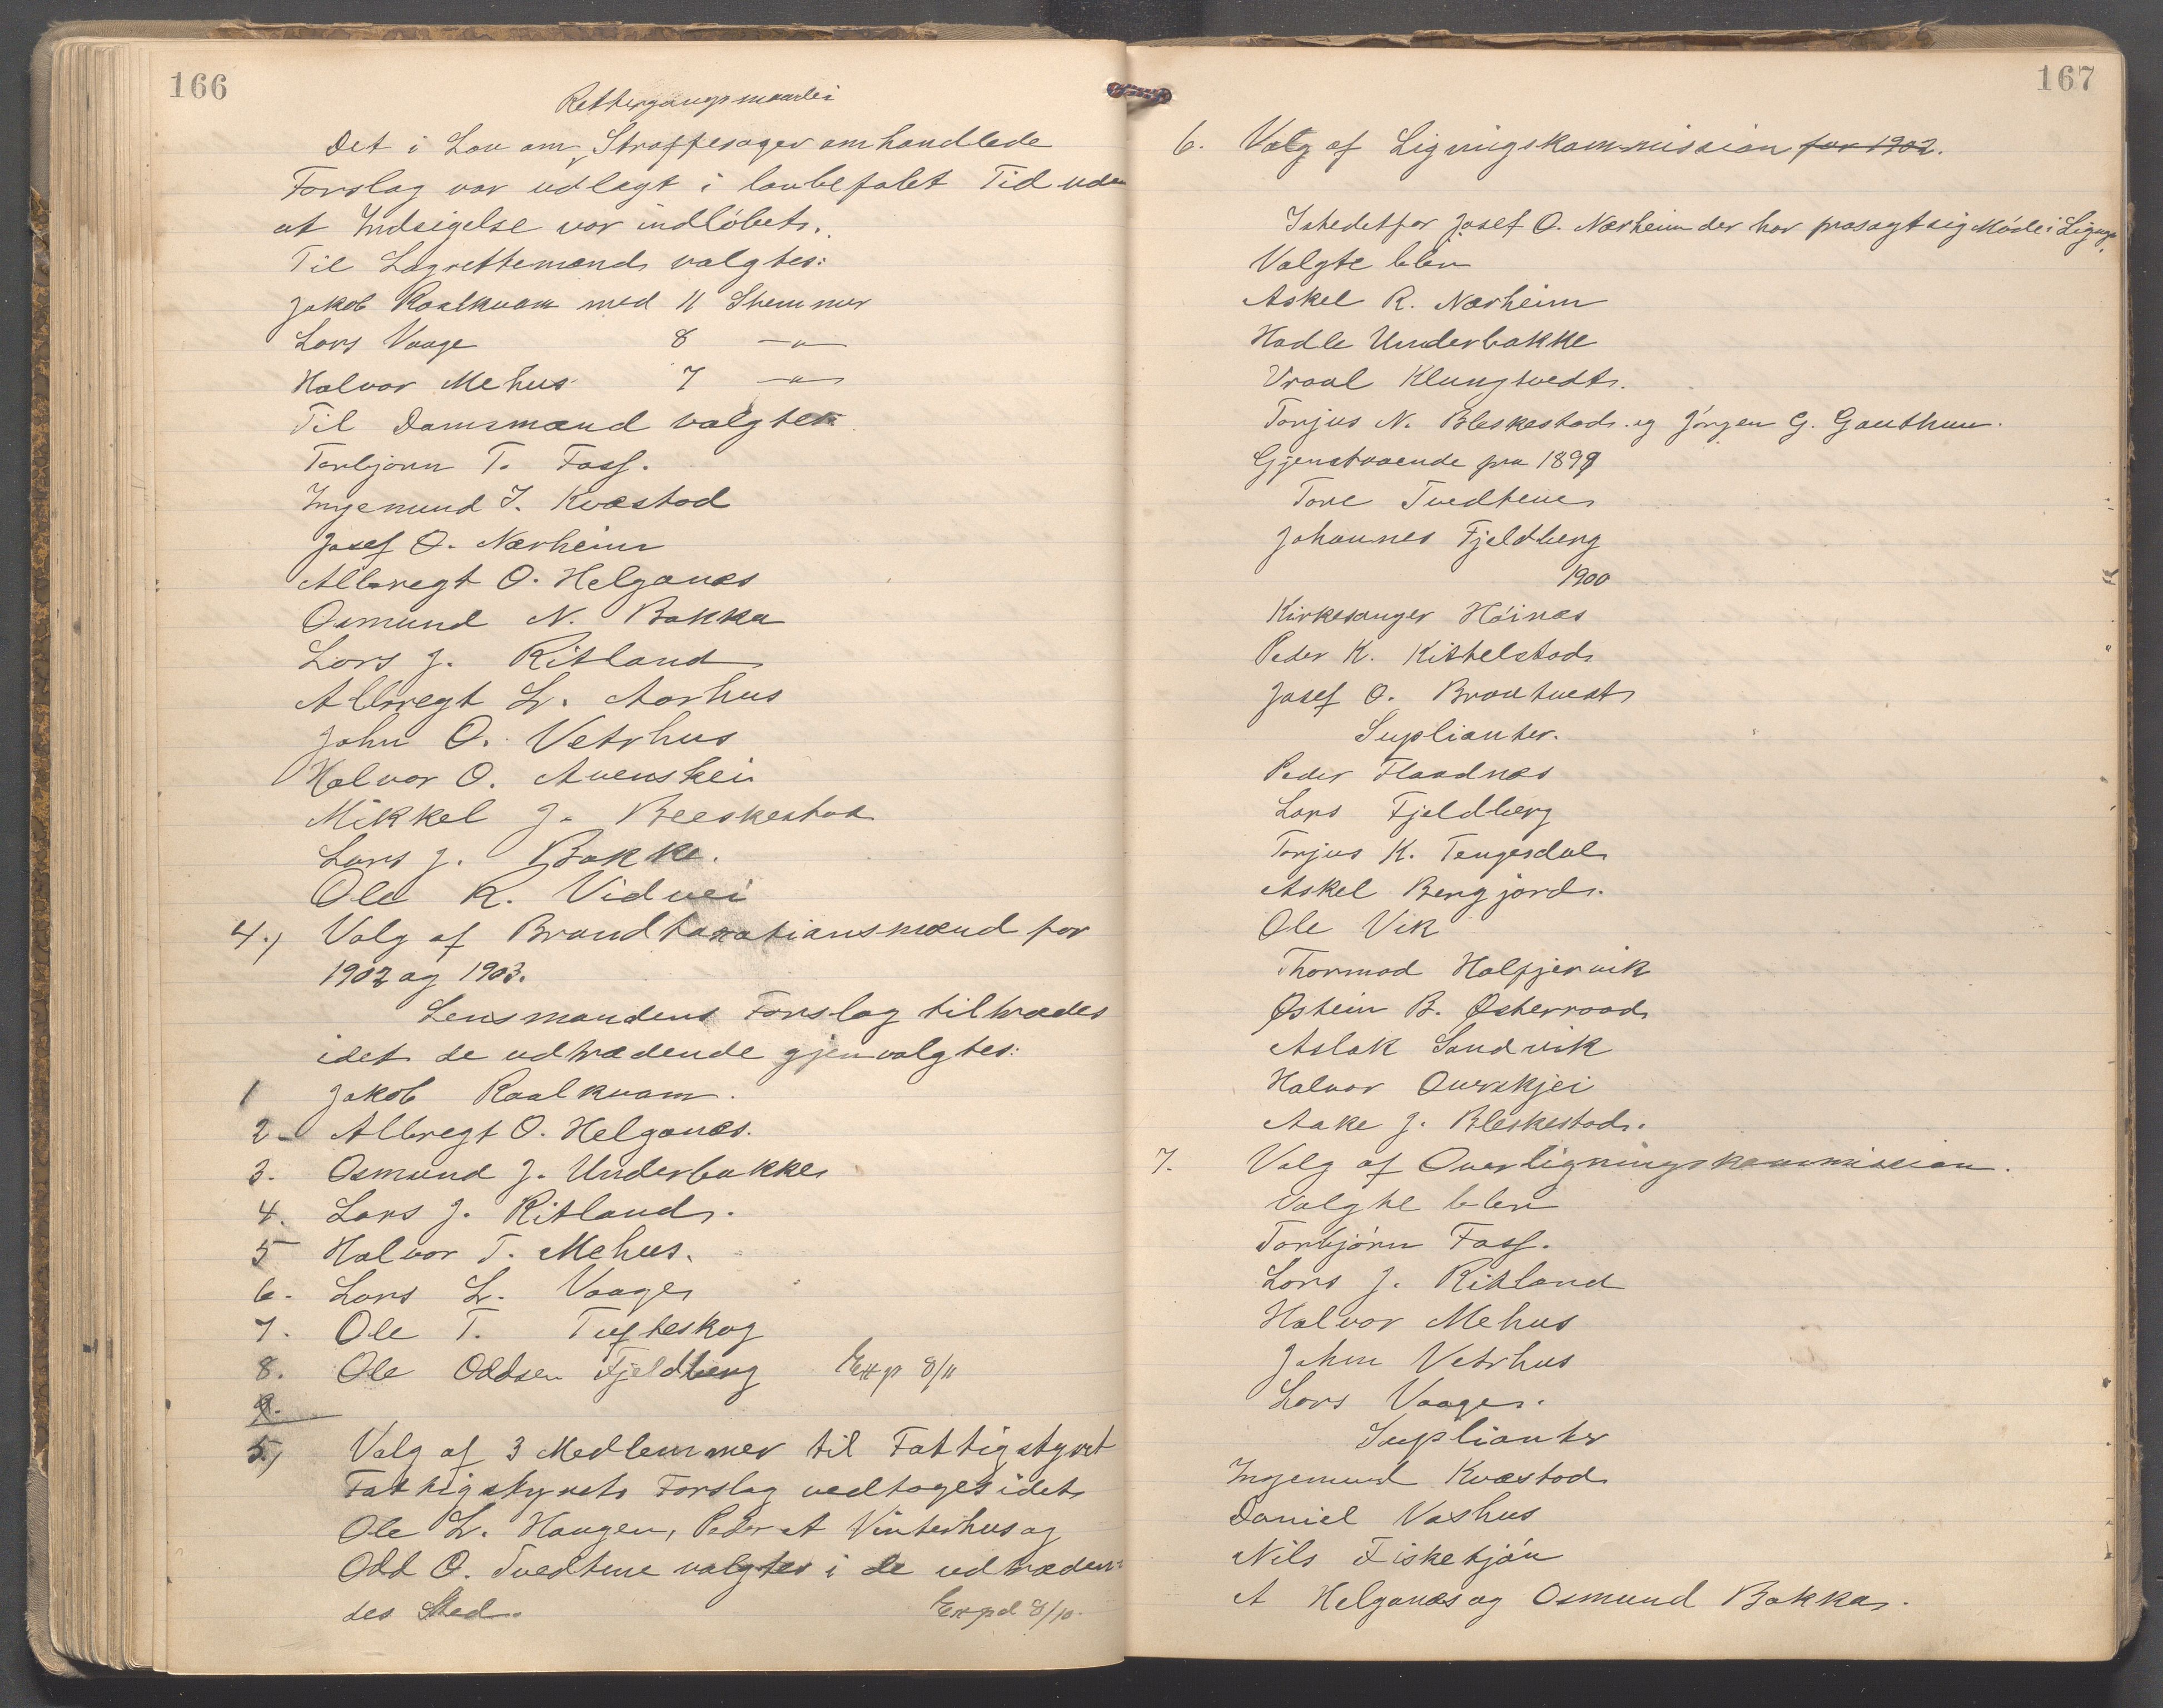 166
Rettergangsmaade i
Det i Lov om Straffesager omhandlede
Forslag var udlagt i lovbefalet Tid uden
at Indsigelse var indløbet.
Til Lagrettemænd valgtes:
Jakob Raalkvam med 11 Stemmer
Lars Vaage 8 —"—
Halvor Mehus 7 —"—
Til Domsmænd valgtes
Torbjørn T. Foss.
Ingemund I. Kvæstad
Josef O. Nærheim
Albregt O. Helganes
Osmund N. Bakka
Lars J. Ritland
Albregt L. Aarhus
John O. Vetrhus
Halvor O. Avenskei
Mikkel J. Bleskestad
Lars J. Bakke.
Ole R. Vidvei
4.) Valg af Brandtaxationsmænd for
1902 og 1903.
Lensmandens Forslag tiltrædes
idet de udtrædende gjenvalgtes:
1 Jakob Raalkvam.
2 Albregt O. Helganes.
3. Osmund J. Underbakke
4. Lars J. Ritland.
5 Halvor T. Mehus.
6. Lars L. Vaage
7. Ole T. Tufteskog
8. Ole Oddsen Fjeldberg Exp 8/11
9.
5.) Valg af 3 Medlemmer til Fattigstyret
Fattigstyrets Forslag vedtoges idet
Ole L. Haugen, Peder A Vinterhus og
Odd O. Tvedtene valgtes i de udtræden:
des Sted. Expd 8/10.
167
6. Valg af Ligningskommission for 1902.
Istedetfor Josef O. Nærheim der har frasagt sig Møde i
Valgte blev
Askel R. Nærheim
Hadle Underbakke
Vraal Klungtvedt.
Torjus N. Bleskestad og Jørgen G. Gauthun.
Gjenstaaende fra 1899
Tore Tvedtene
Johannes Fjeldberg
1900
Kirkesanger Høines
Peder K. Kittelstad
Josef O. Brautvedt
Suplianter.
Peder Flaadnes
Lars Fjeldberg
Torjus K. Tengesdal
Askel Bergjord.
Ole Vik
Thormod Halfjervik
Østein B. Østerraad
Aslak Sandvik
Halvor Overskjei
Aake J. Bleskestad.
7. Valg af Overligningskommission.
Valgte blev
Torbjørn Foss.
Lars J. Ritland
Halvor Mehus
John Vetrhus
Lars Vaage.
Suplianter
Ingemund Kvæstad
Daniel Vashus
Nils Fisketjøn
A Helganes og Osmund Bakka.